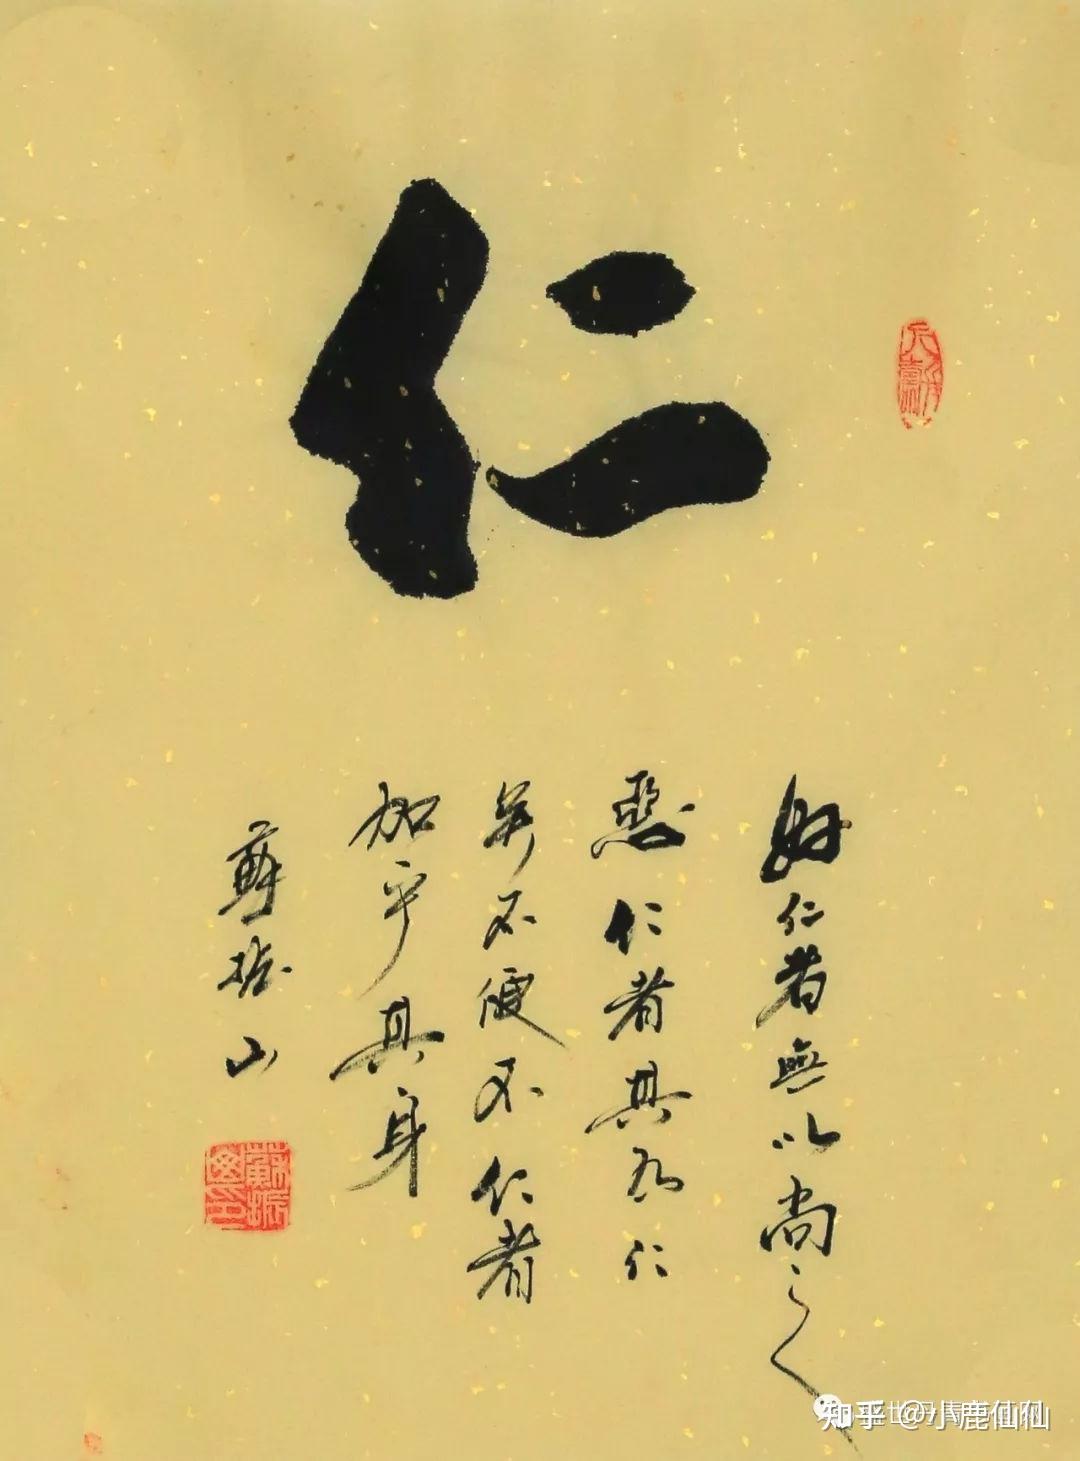 仁
好仁者無以尚之
惡仁者其为仁
矣不使不仁者
加乎其身
蘇振山
知乎 @小鹿仙仙